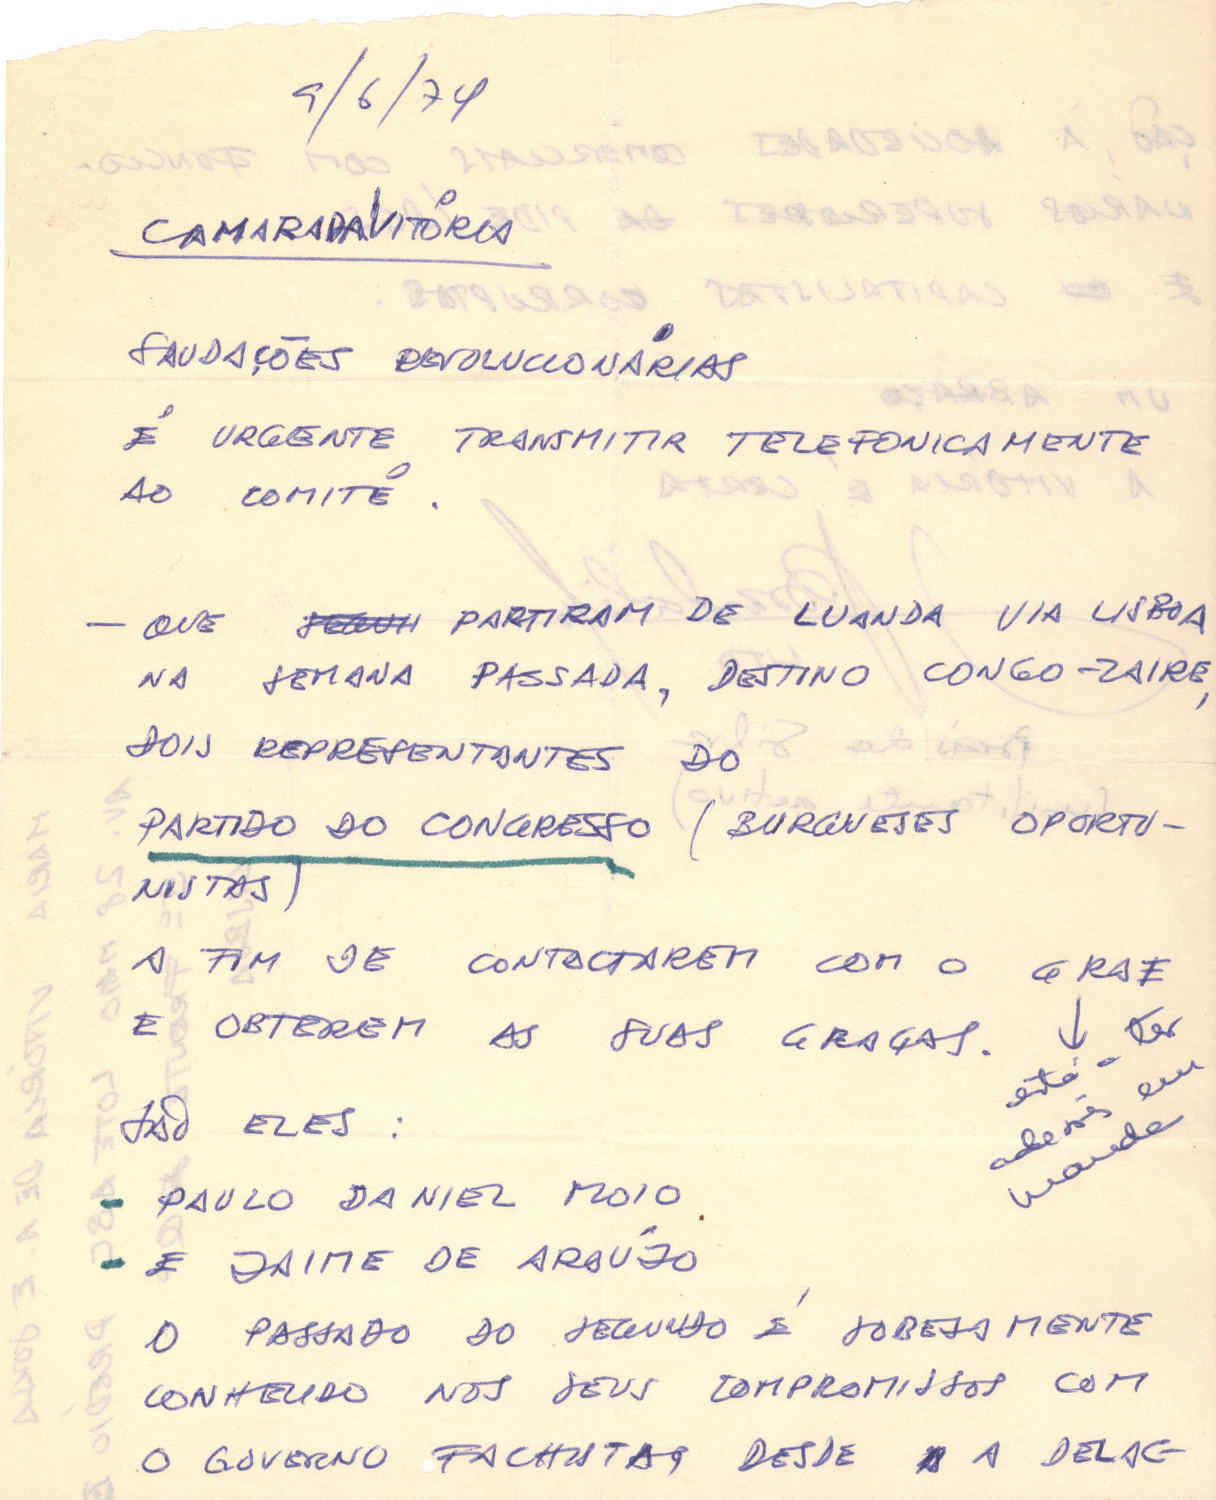 9/6/74
CAMARADA VITÓRIA
SAUDAÇÕES REVOLUCIONÁRIAS
É URGENTE TRANSMITIR TELEFONICAMENTE
AO COMITÉ.
- QUE PARTIRAM DE LUANDA VIA LISBOA
NA SEMANA PASSADA, DESTINO CONGO-ZAIRE,
DOIS REPRESENTANTES DO
PARTIDO DO CONGRESSO (BURGUESES OPORTU-
NISTAS)
A FIM DE CONTACTAREM COM O GRAE
E OBTEREM AS SUAS GRAÇAS.
SÃO ELES:
- PAULO DANIEL MOIO
- E JAIME DE ARAÚJO
O PASSADO DO SEGUNDO É SOBEJAMENTE
CONHECIDO NOS SEUS COMPROMISSOS COM
O GOVERNO FACHISTA, DESDE A DELAC-